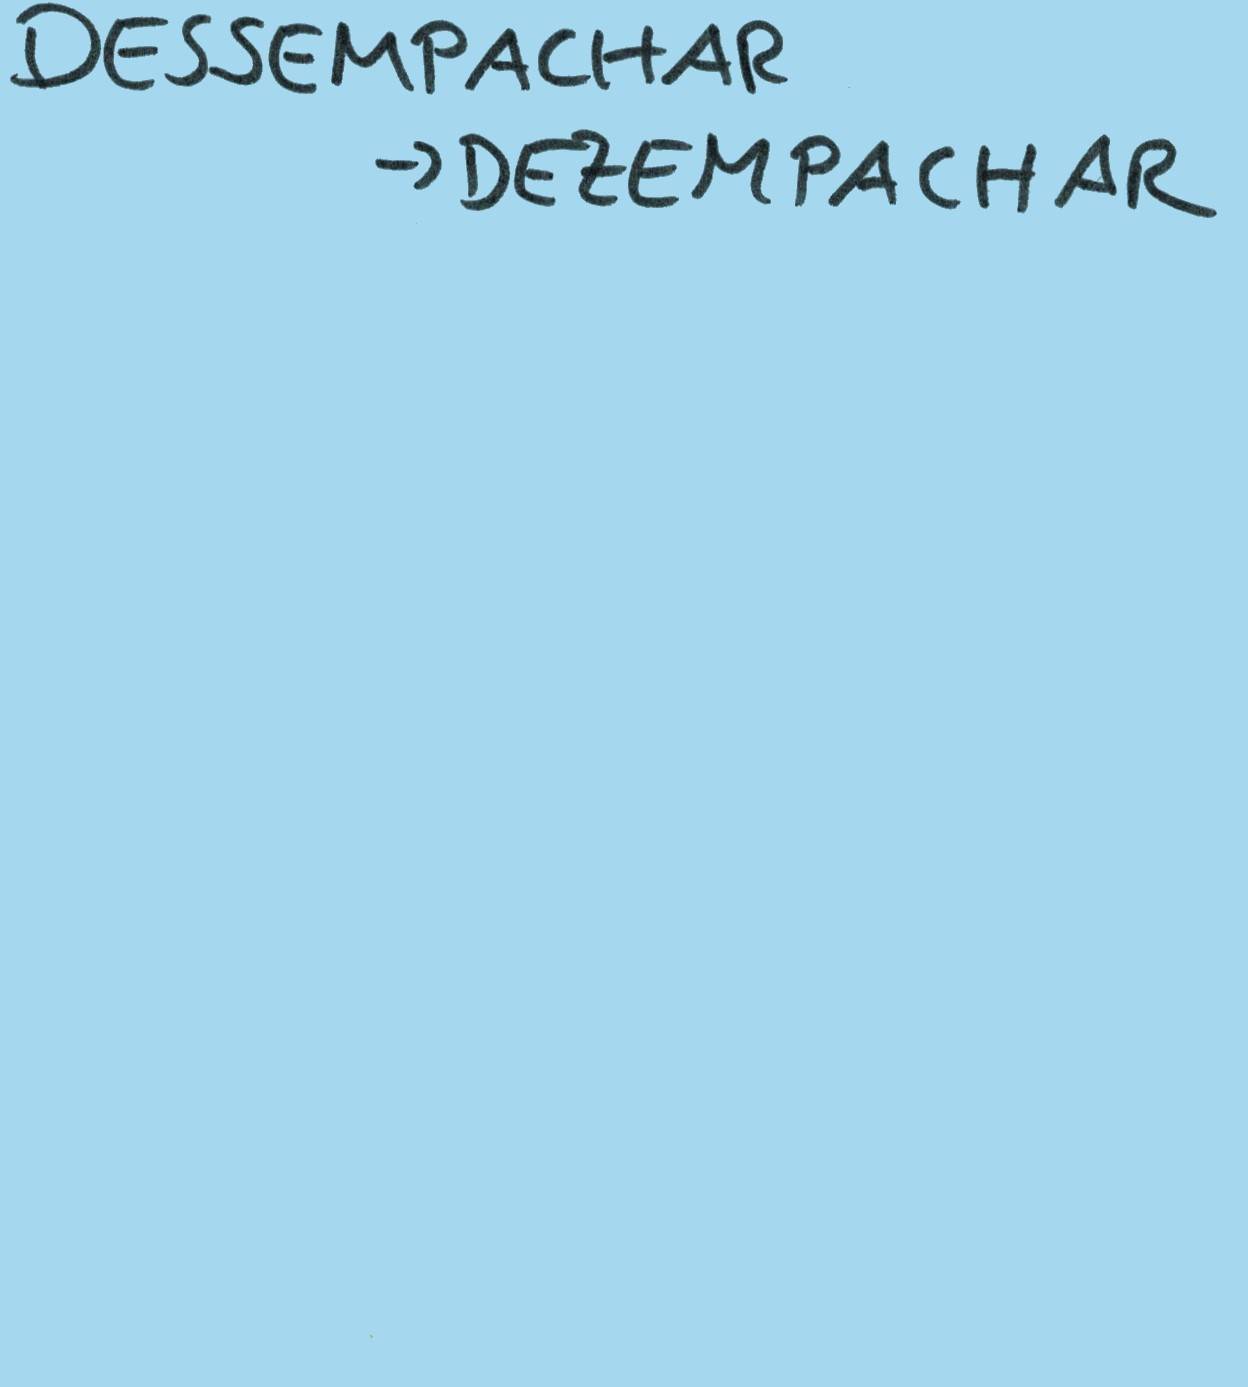 DESSEMPACHAR
→DEZEMPACHAR